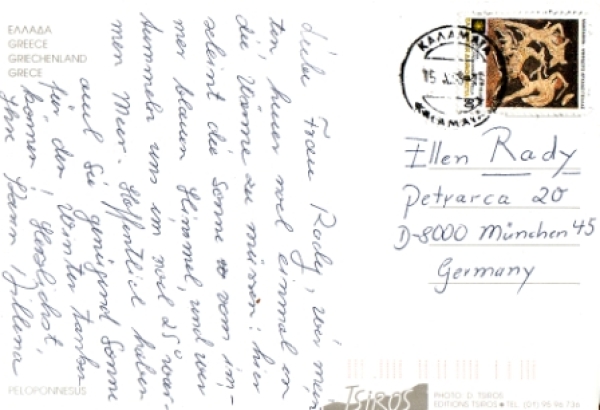 ΕΛΛΑΔΑ
GREECE
GRIECHENLAND
GRECE
Liebe Frau Rady, wir
hier noch einmal in
die Wärme zu : hier
scheint die Sonne vom im-
mer blauen Himmel, und wir
uns im noch 25°
men Meer. Hoffentlich haben
auch Sie genügend Sonne
für den Winter tanken
können! Herzlichst,
Ihre
PELOPONNESUS
ΚΑΛΑΜΑΤΑ
ΚΑΛΑΜΑΤΑ
Ellen Rady
Petrarca 20
D-8000 München 45
Germany
TSIROS
PHOTO: D. TSIROS
EDITIONS TSIROS • TEL. (01) 95 96 736